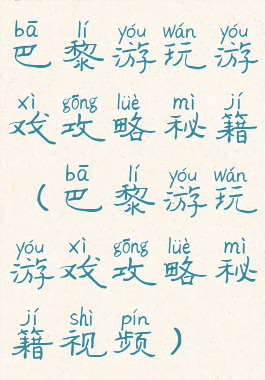 bā lí yóu wán yóu
巴黎游玩游
xì gōng lüè mì jí
戏攻略秘籍
bā lí yóu wán
(巴黎游玩
yóu xì gōng lüè mì
游戏攻略秘
jí shì pín
籍视频)